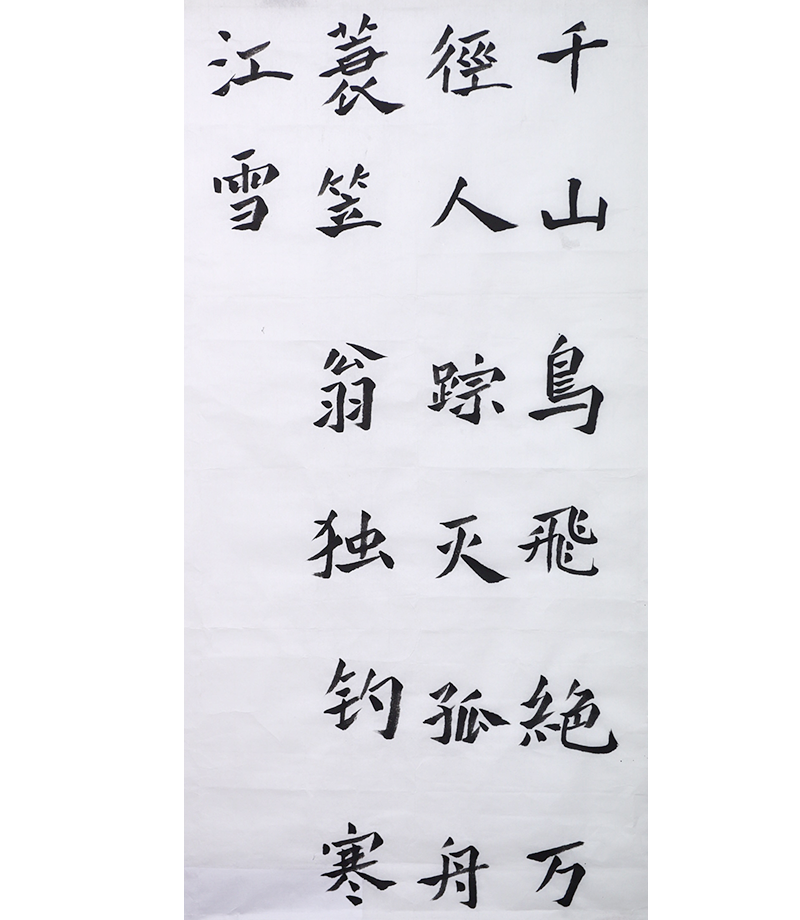 千山鳥飛絶万
徑人踪灭孤舟
蓑笠翁独钓寒
江雪